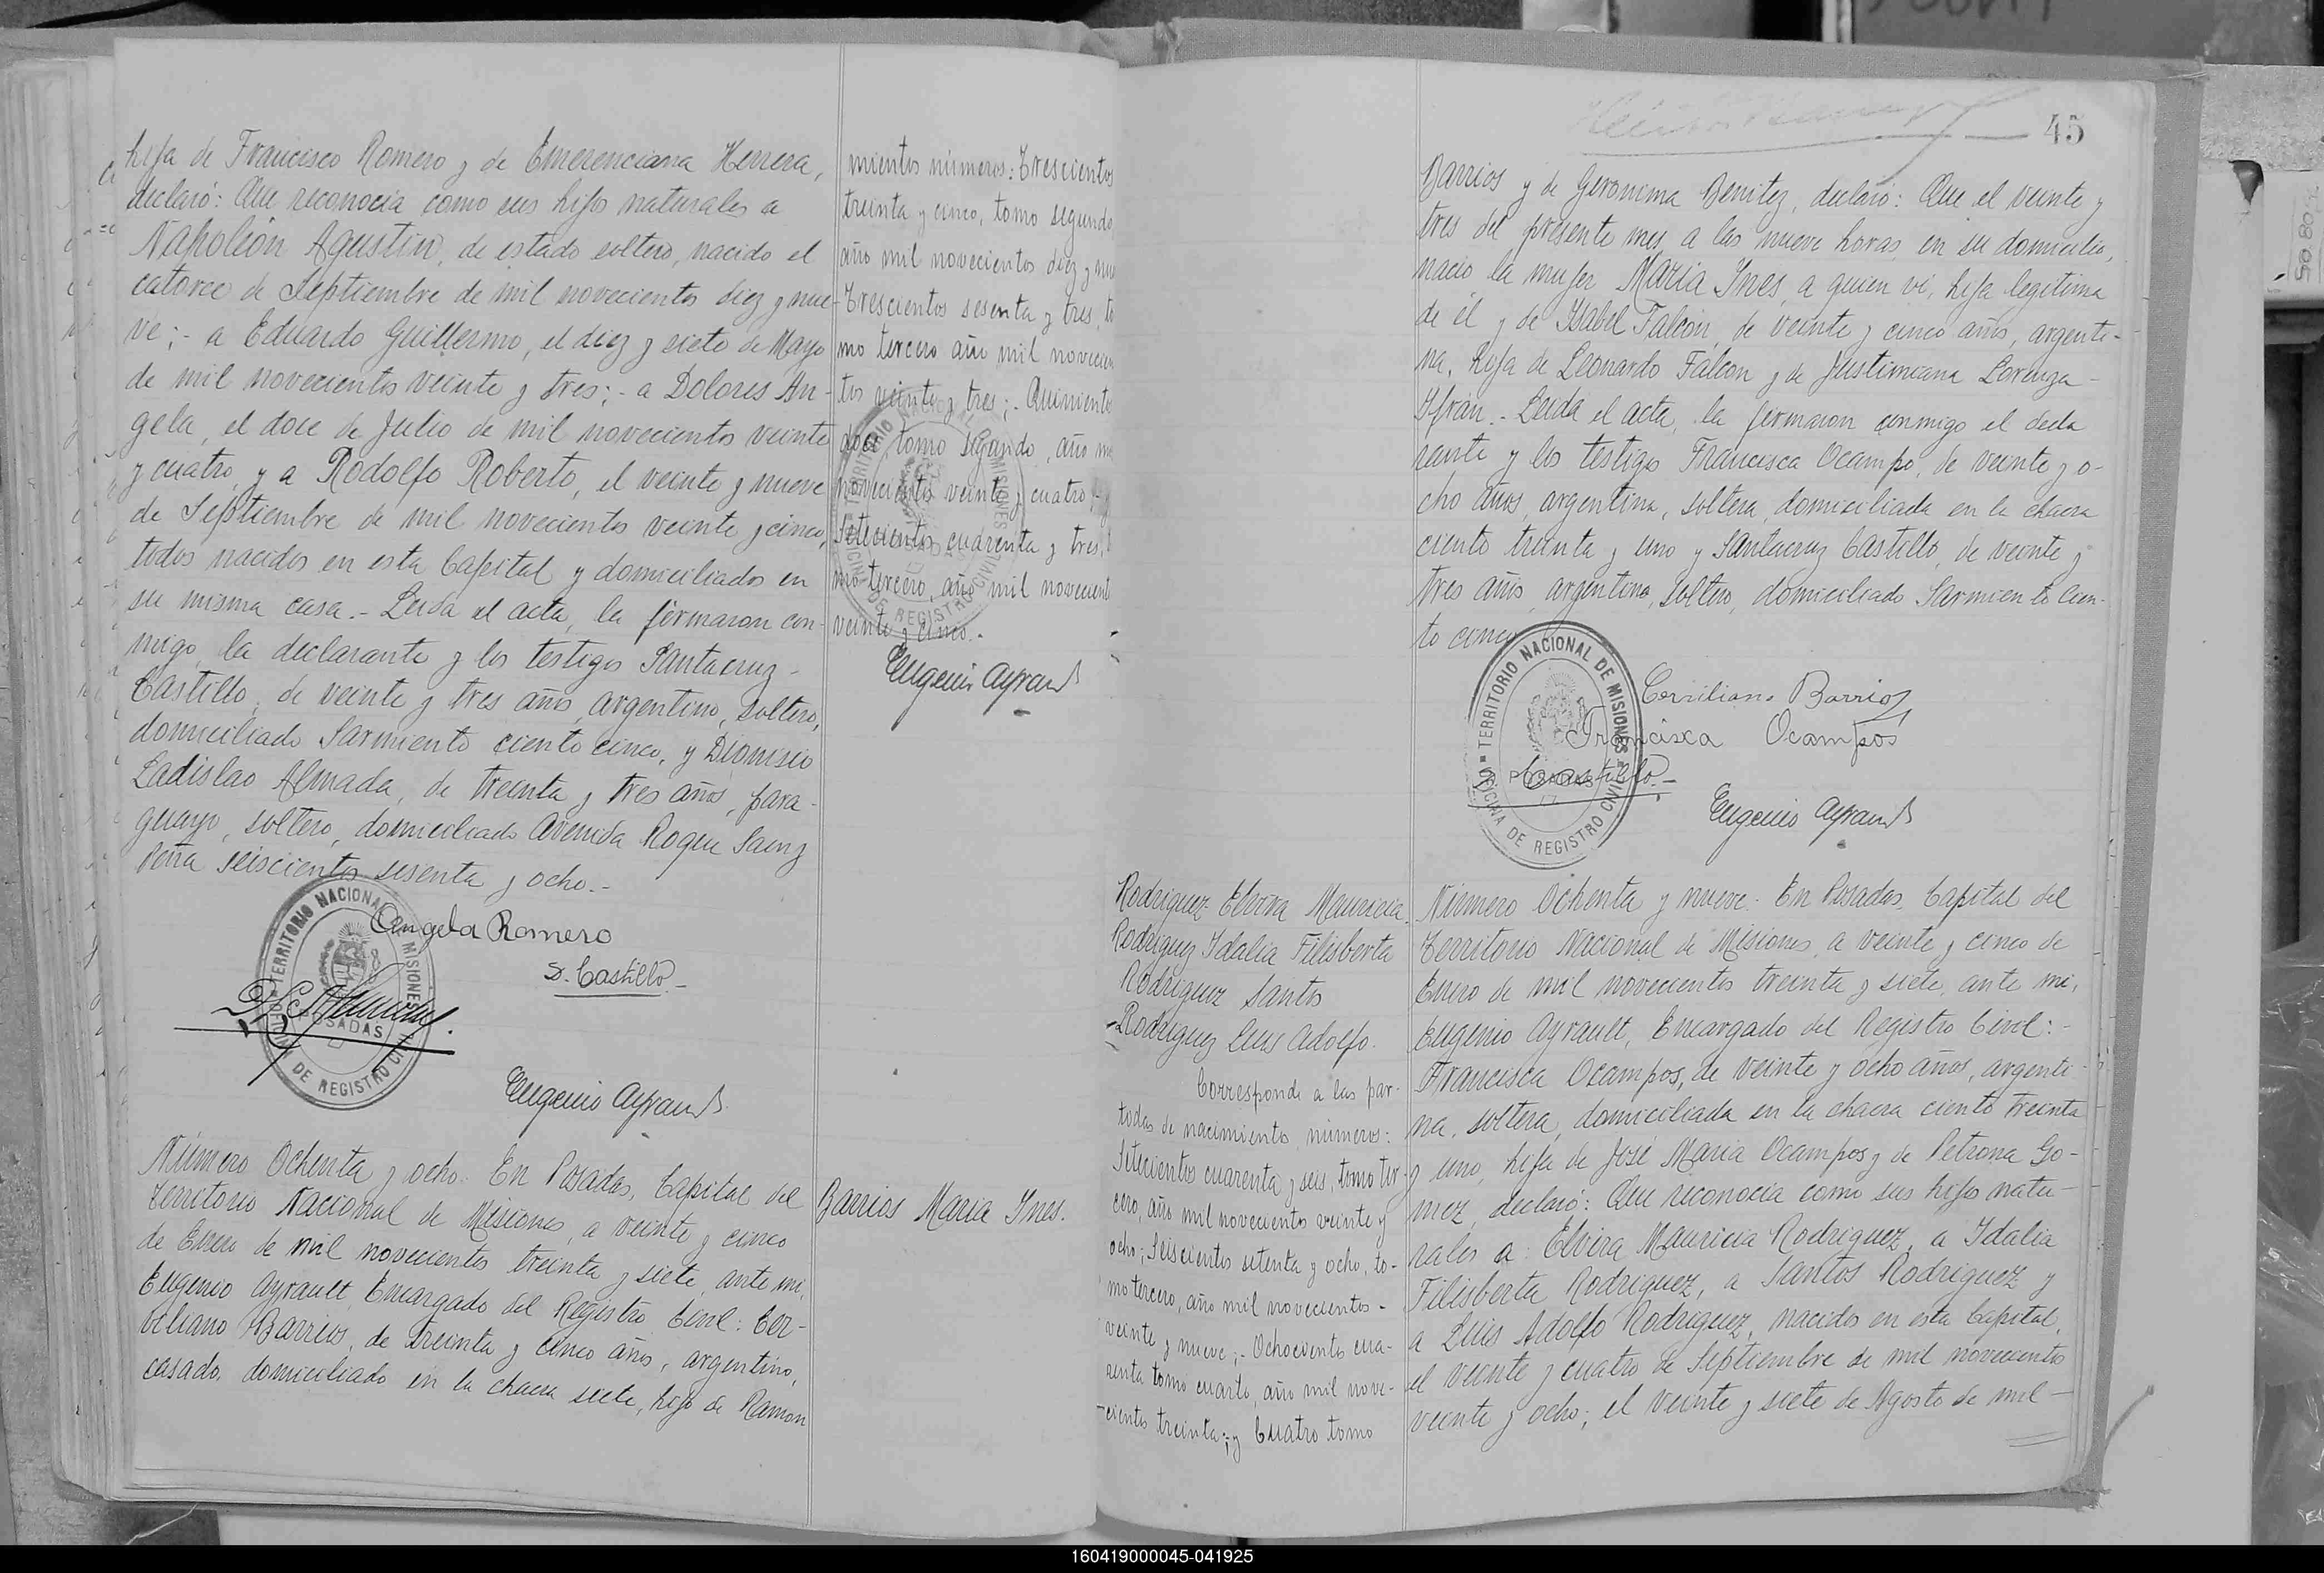 hija de Francisco Romero y de Emerenciana Herrera,
declaró: Que reconocia como sus hijos naturales a
Napoleón Agustin, de estado soltero, nacido el
catorce de Septiembre de mil novecientos diez y nue-
ve; - a Eduardo Guillermo, el diez y siete de Mayo
de mil novecientos veinte y tres; - a Dolores An-
gela, el doce de Julio de mil novecientos veinte
y cuatro, y a Rodolfo Roberto, el veinte y nueve
de Septiembre de mil novecientos veinte y cinco,
todos nacidos en esta Capital y domiciliados en
su misma casa. - Leida el acta, la firmaron con-
migo, la declarante y los testigos Santacruz -
Castillo, de veinte y tres años, argentino, soltero,
domiciliado Sarmiento ciento cinco, y Dionisio
Ladislao Almada, de treinta y tres años, para-
guayo, soltero, domiciliado Avenida Roque Saenz
Peña seiscientos sesenta y ocho. -
Angela Romero
S. Castillo -
Eugenio Ayrault
TERRITORIO NACIONAL DE MISIONES
POSADAS
OFICINA DE REGISTRO CIVIL
mientos números: Trescientos
treinta y cinco, tomo segundo
año mil novecientos diez y nue
Trescientos sesenta y tres, to
mo tercero año mil novecien
tos veinte y tres; - Quinientos
doce, tomo segundo, año mil
novecientos veinte y cuatro, - y
Setecientos cuarenta y tres, to
mo tercero, año mil novecient
veinte y cinco. -
Eugenio Ayrault
TERRITORIO NACIONAL DE MISIONES
OFICINA DE REGISTRO CIVIL
Número Ochenta y ocho. En Posadas, Capital del
Territorio Nacional de Misiones, a veinte y cinco
de Enero de mil novecientos treinta y siete, ante mi,
Eugenio Ayrault, Encargado del Registro Civil: Cer-
biliano Barrios, de treinta y cinco años, argentino,
casado, domiciliado en la chacra siete, hijo de Ramon
Barrios Maria Ines.
45
Barrios y de Geronima Benitez, declaró: Que el veinte y
tres del presente mes, a las nueve horas, en su domicilio,
nacio la mujer Maria Ines, a quien vi, hija legitima
de él y de Ysabel Falcón, de veinte y cinco años, argenti-
na, hija de Leonardo Falcon y de Justiniana Lorenza -
Yfran. - Leida el acta, la firmaron conmigo el decla
rante y los testigos Francisca Ocampo, de veinte y o-
cho años, argentina, soltera, domiciliada en la chacra
ciento treinta y uno y Santacruz Castillo, de veinte y
tres años, argentino, soltero, domiciliado Sarmiento cien-
to cinco
Cerviliano Barrios
Francisca Ocampos
S. Castillo. -
Eugenio Ayrault
TERRITORIO NACIONAL DE MISIONES
POSADAS
OFICINA DE REGISTRO CIVIL
Rodriguez Elvira Mauricia.
Rodriguez Idalia Filisberta
Rodriguez Santos
Rodriguez Luis Adolfo.
Corresponde a las par-
tidas de nacimiento números:
Setecientos cuarenta y seis, tomo ter-
cero, año mil novecientos veinte y
ocho; Seiscientos setenta y ocho, to-
mo tercero, año mil novecientos -
veinte y nueve; - Ochocientos cua-
renta tomo cuarto, año mil nove-
cientos treinta; y Cuatro tomo
Número Ochenta y nueve. En Posadas, Capital del
Territorio Nacional de Misiones, a veinte y cinco de
Enero de mil novecientos treinta y siete, ante mi,
Eugenio Ayrault, Encargado del Registro Civil: -
Francisca Ocampos, de veinte y ocho años, argenti-
na, soltera, domiciliada en la chacra ciento treinta
y uno, hija de José Maria Ocampos y de Petrona Go-
mez, declaró: Que reconocia como sus hijos natu-
rales a: Elvira Mauricia Rodriguez, a Idalia
Filisberta Rodriguez, a Santos Rodriguez y
a Luis Adolfo Rodriguez, nacidos en esta Capital,
el veinte y cuatro de Septiembre de mil novecientos
veinte y ocho; el veinte y siete de Agosto de mil -
160419000045-041925